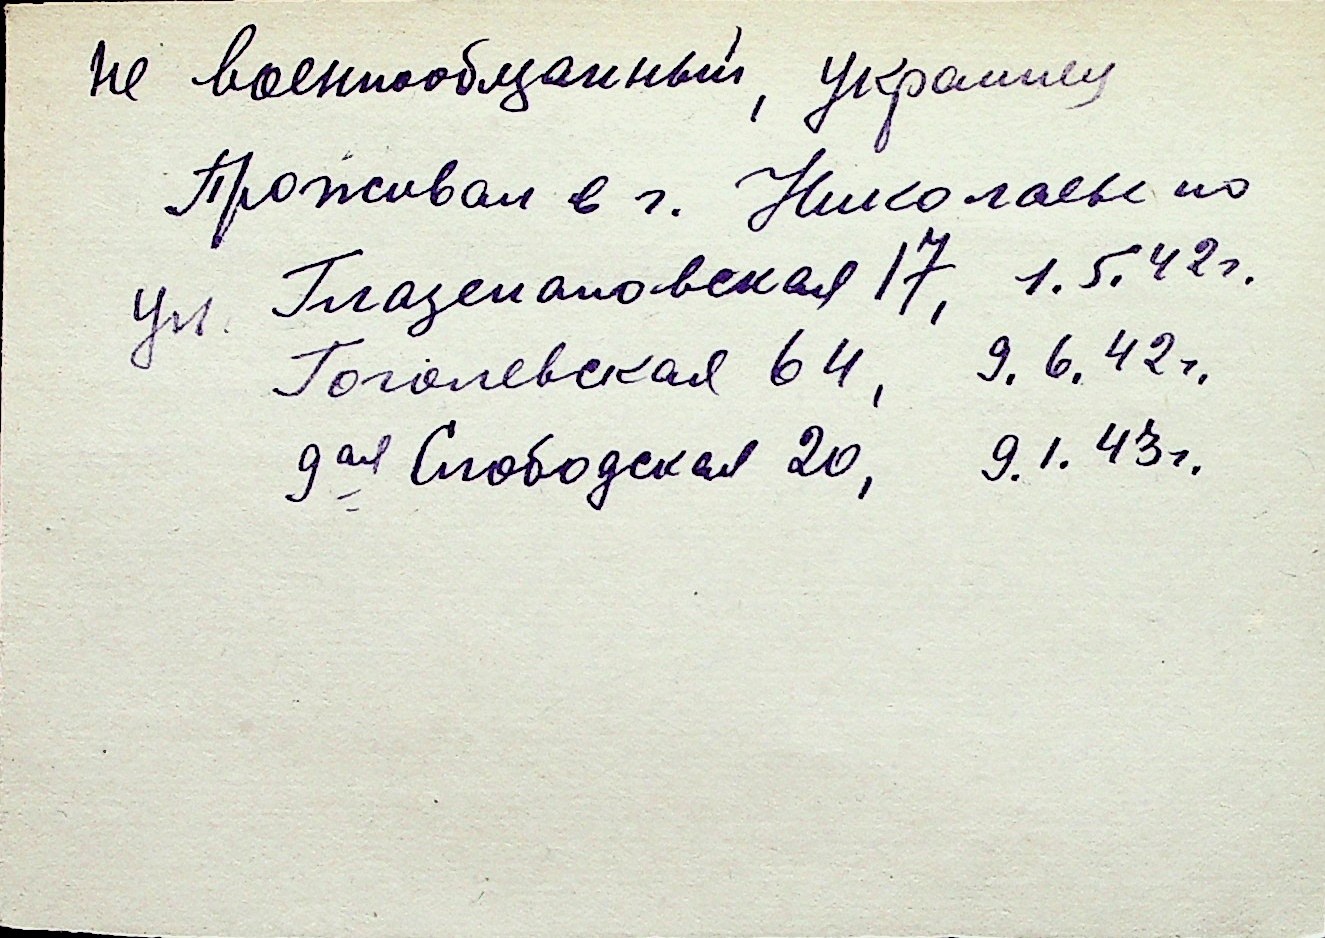 не военнообязанный, украинец
Проживал в г. Николаеве по
ул. Глазенаповская 17, 1.5.42г.
Гоголевская 64, 9.6.42г.
9ая Слободская 20, 9.1.43г.